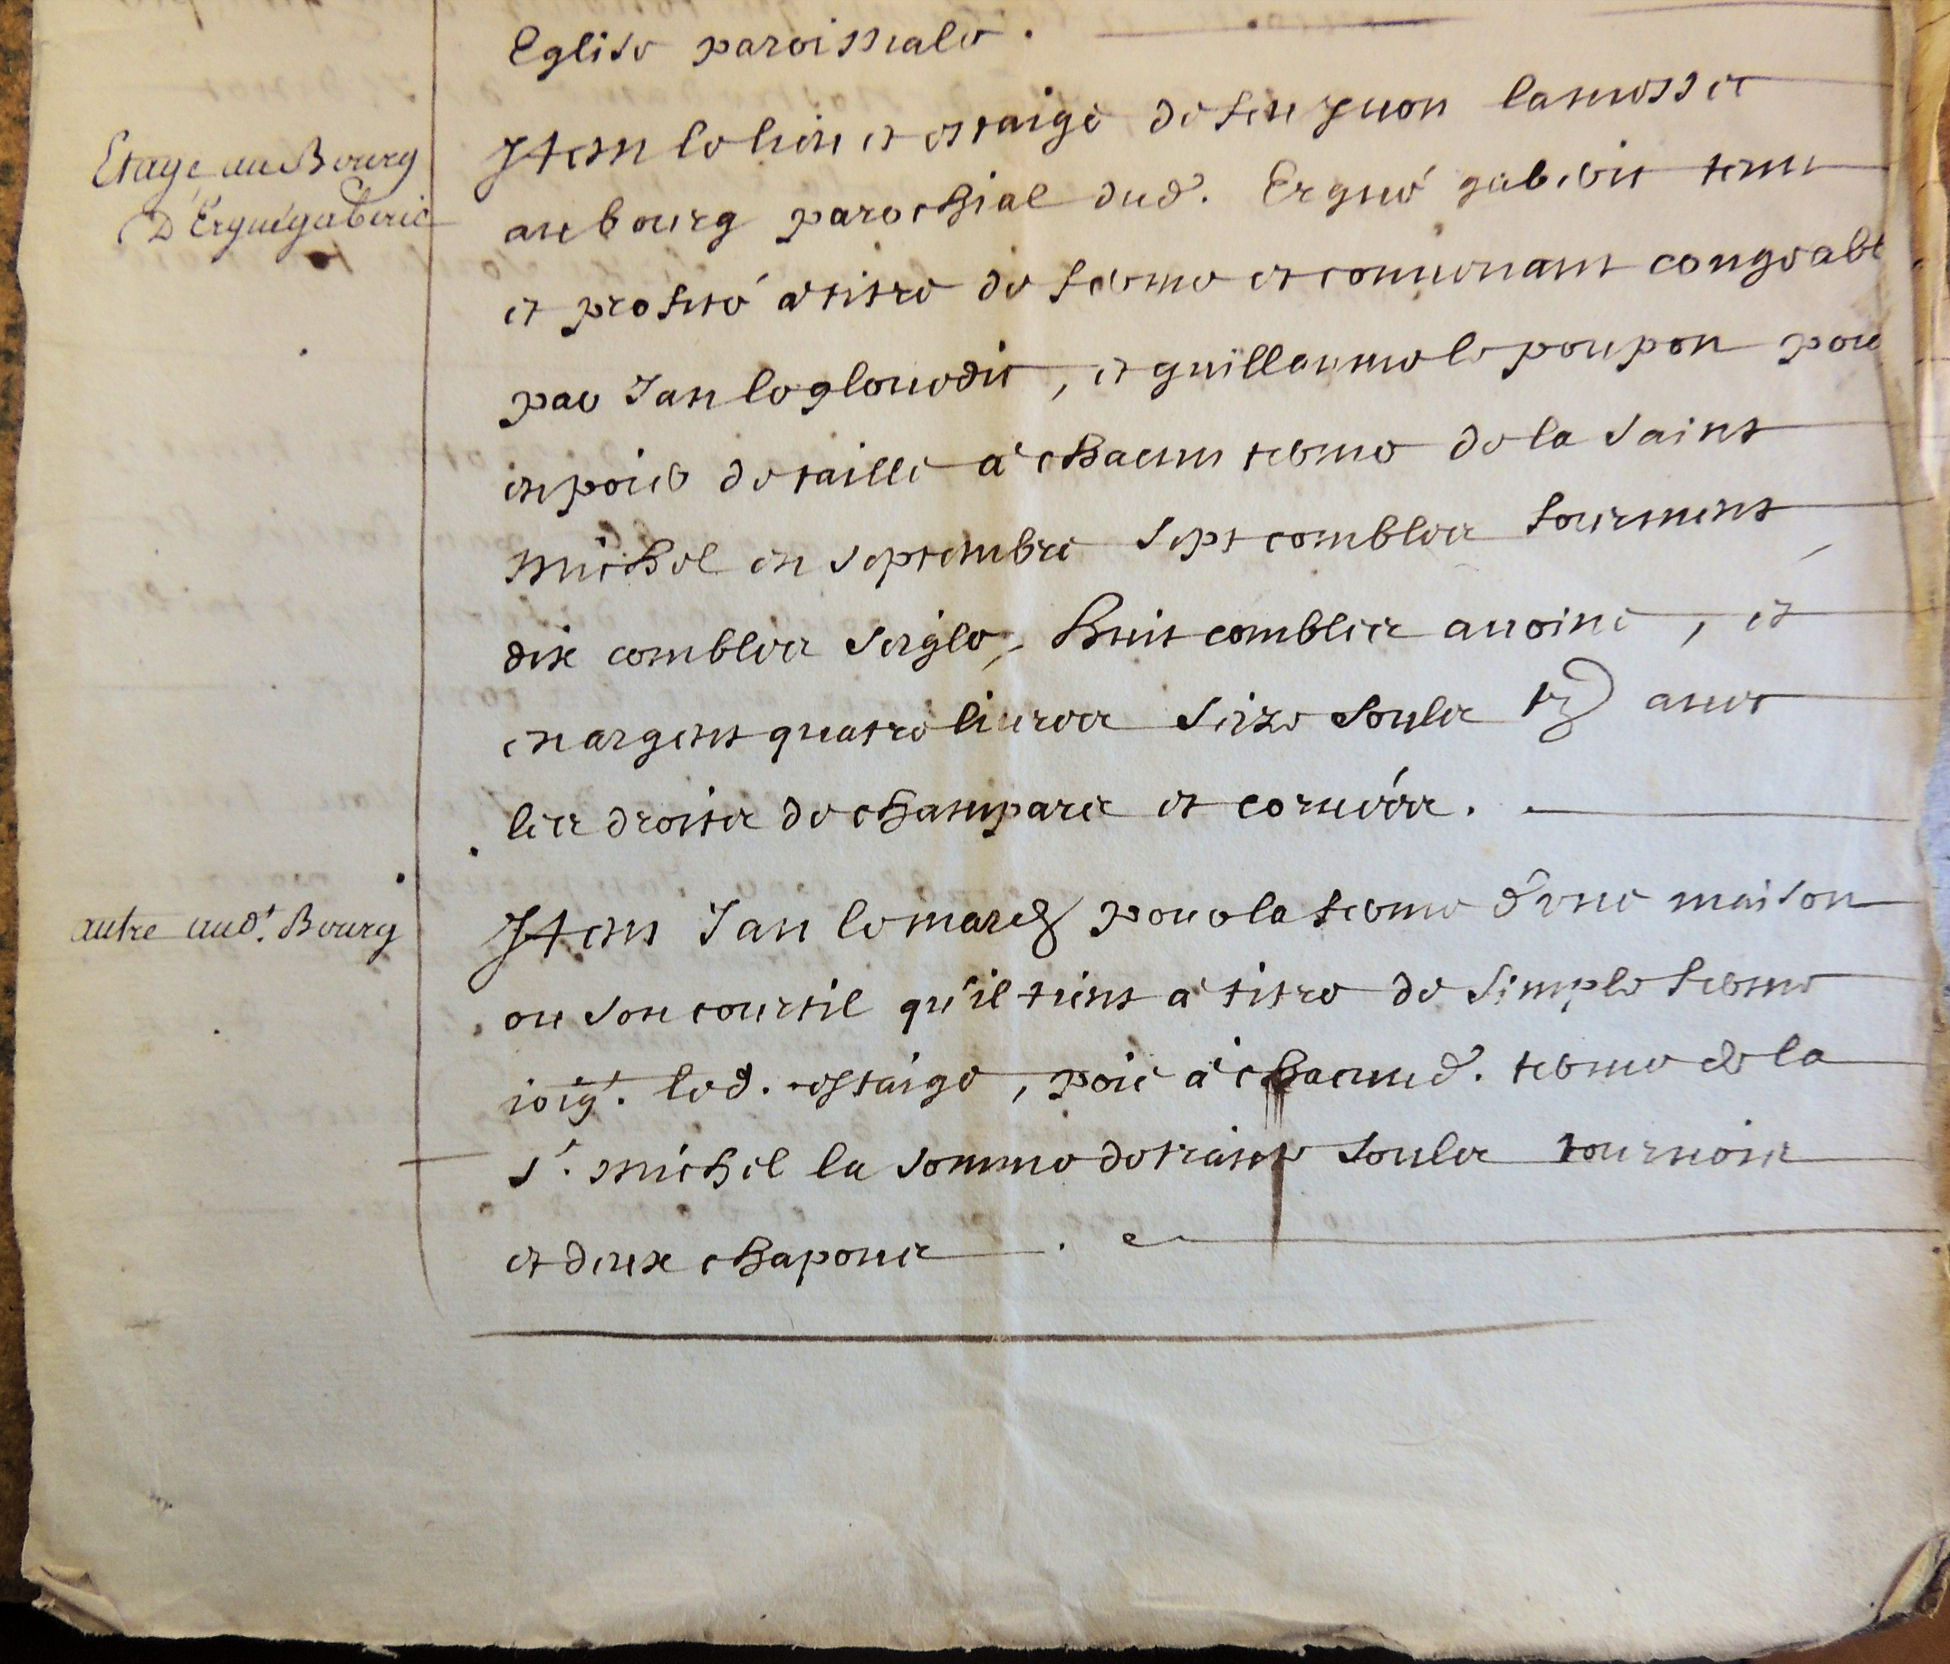 Eglise paroissiale.
Etage au Bourg
D'Erguégaberic
Item le lieu et estaige de feu yuon
au bourg parochial dud. Ergué gaberic tenu
et profité a titre de ferme et conuenant congeable
par Jan le glouedic, et guillaume le poupon pour
en poier de taille a chacun terme de la saint
michel en septembre sept combles fourment
dix combles seigle, huit combles auoine, et
en argent quatre liures seize soulz tz auec
les droits de champars et coruées.
autre aud.t Bourg
Item Jan le march pour la ferme d'vne maison
ou son courtil qu'il tient a titre de simple ferme
ioig.t led. estaige, poie a chacun d. terme de la
s.t michel la somme de trante soulz tournois
et deux chapons